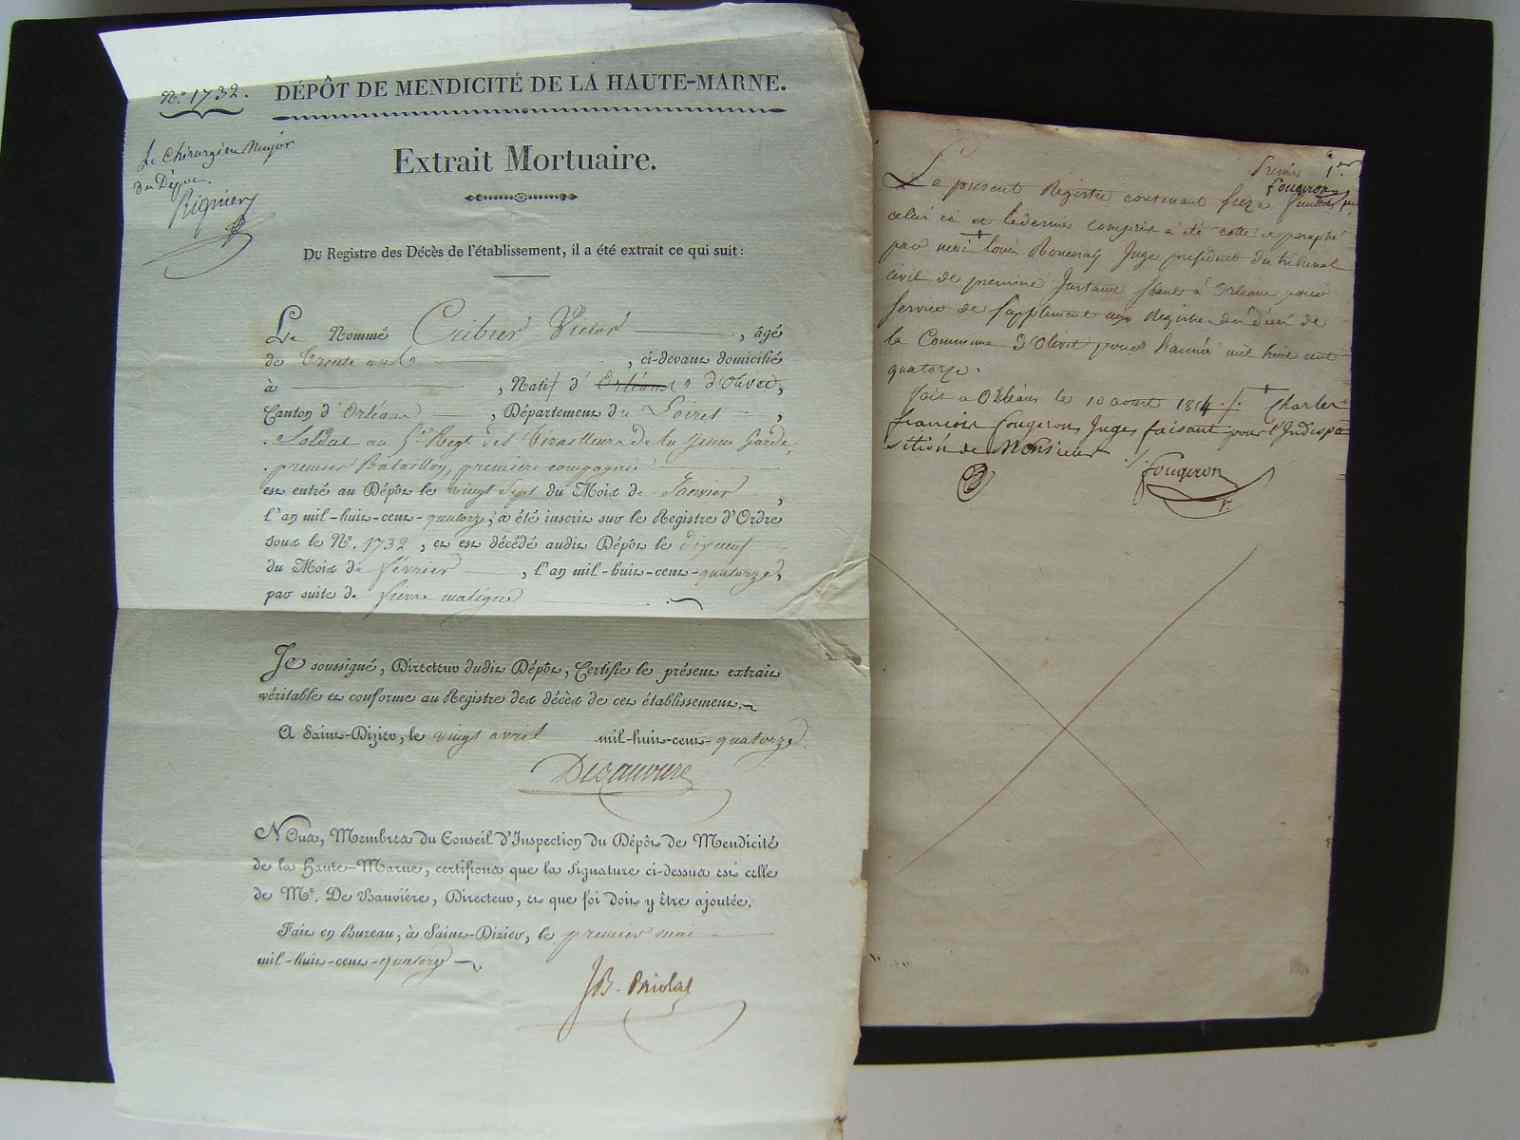 N° 1732.
DÉPÔT DE MENDICITÉ DE LA HAUTE-MARNE.
Le Chirurgien Major
du Dépôt.
Rignier
Extrait Mortuaire.
Du Registre des Décès de l'établissement, il a été extrait ce qui suit:
Le Nommé Cribier Victor, âgé
de trente ans, ci-devant domicilié
à , Natif d' Orléans d'Olivet,
Canton d'Orléans, Département du Loiret,
Soldat au 5e Regt des Tirailleurs de la jeune Garde,
premier Bataillon, première compagnie
est entré au Dépôt le vingt sept du Mois de Janvier,
l'an mil-huit-cent-quatorze; a été inscrit sur le Registre d'Ordre
sous le N°. 1732, et est décédé audit Dépôt le dixneuf
du Mois de février, l'an mil-huit-cent-quatorze,
par suite de fievre maligne
Je soussigné, Directeur dudit Dépôt, Certifie le présent extrait
véritable et conforme au Registre des décès de cet établissement.
A Saint-Dizier, le vingt avril mil-huit-cent-quatorze
Nous, Membres du Conseil d'Inspection du Dépôt de Mendicité
de la Haute-Marne, certifions que la signature ci-dessus est celle
de Mr. De Vauvière, Directeur, et que foi doit y être ajoutée.
Fait en Bureau, à Saint-Dizier, le premier mai
mil-huit-cent-quatorze
JB. Briolat
1er
fougeron
Le present Registre contenant seize feuillets
celui ci et le dernier compris a été cotté et paraphé
par nous louis Juge president du tribunal
civil de premiere Instance séant à Orleans pour
servir de supplement aux Registre des décès de
la Commune d'Olivet pour l'année mil huit cent
quatorze.
fait a Orléans le 10 aoust 1814 Charles
francois fougeron, Juge, faisant pour l'Indispo
sition de Monsieur
fougeron